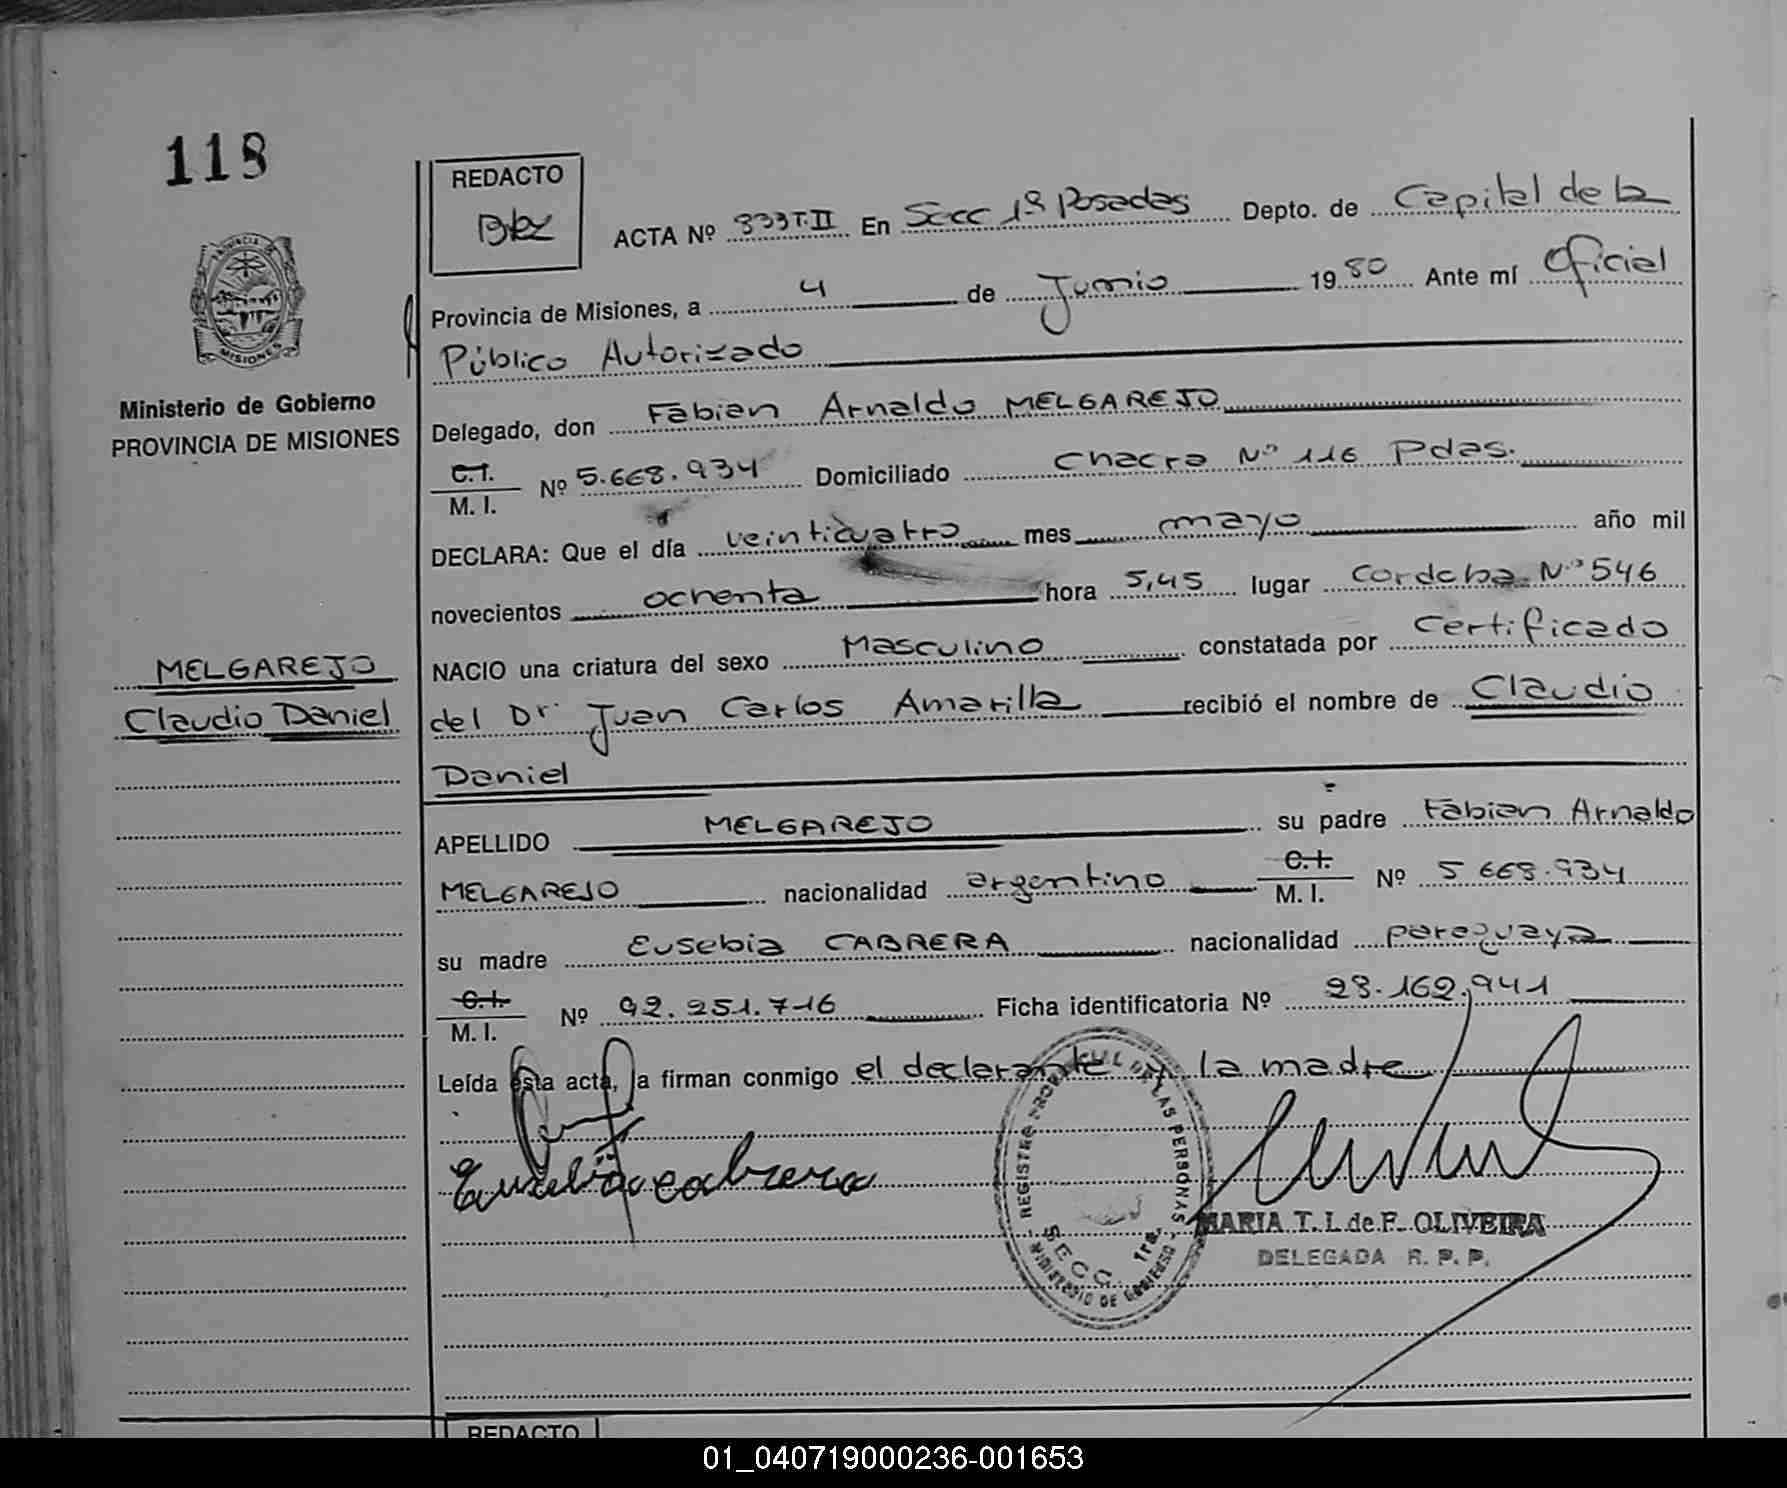 118
REDACTO
PROVINCIA DE
MISIONES
Ministerio de Gobierno
PROVINCIA DE MISIONES
MELGAREJO
Claudio Daniel
ACTA Nº 833 T.II En Secc 1ª Posadas Depto. de Capital de la
Provincia de Misiones, a 4 de Junio 1980 Ante mí Oficial
Público Autorizado
Delegado, don Fabian Arnaldo MELGAREJO
C.I.
M. I. Nº 5.668.934 Domiciliado Chacra Nº 116 Pdas.
DECLARA: Que el día veinticuatro mes mayo año mil
novecientos ochenta hora 5,45 lugar Cordoba Nº 546
NACIO una criatura del sexo Masculino constatada por Certificado
del Dr. Juan Carlos Amarilla recibió el nombre de Claudio
Daniel
APELLIDO MELGAREJO su padre Fabian Arnaldo
MELGAREJO nacionalidad argentino C.I.
M. I. Nº 5 668.934
su madre Eusebia CABRERA nacionalidad paraguaya
C.I.
M. I. Nº 92.251.716 Ficha identificatoria Nº 28.162.941
Leída esta acta, la firman conmigo el declarante y la madre
Eusebia cabrera
REGISTRO PROV. CIVIL DE LAS PERSONAS
SECC. 1ra.
MINISTERIO DE GOBIERNO
MARIA T. I. de F. OLIVEIRA
DELEGADA R. P. P.
REDACTO
01_040719000236-001653